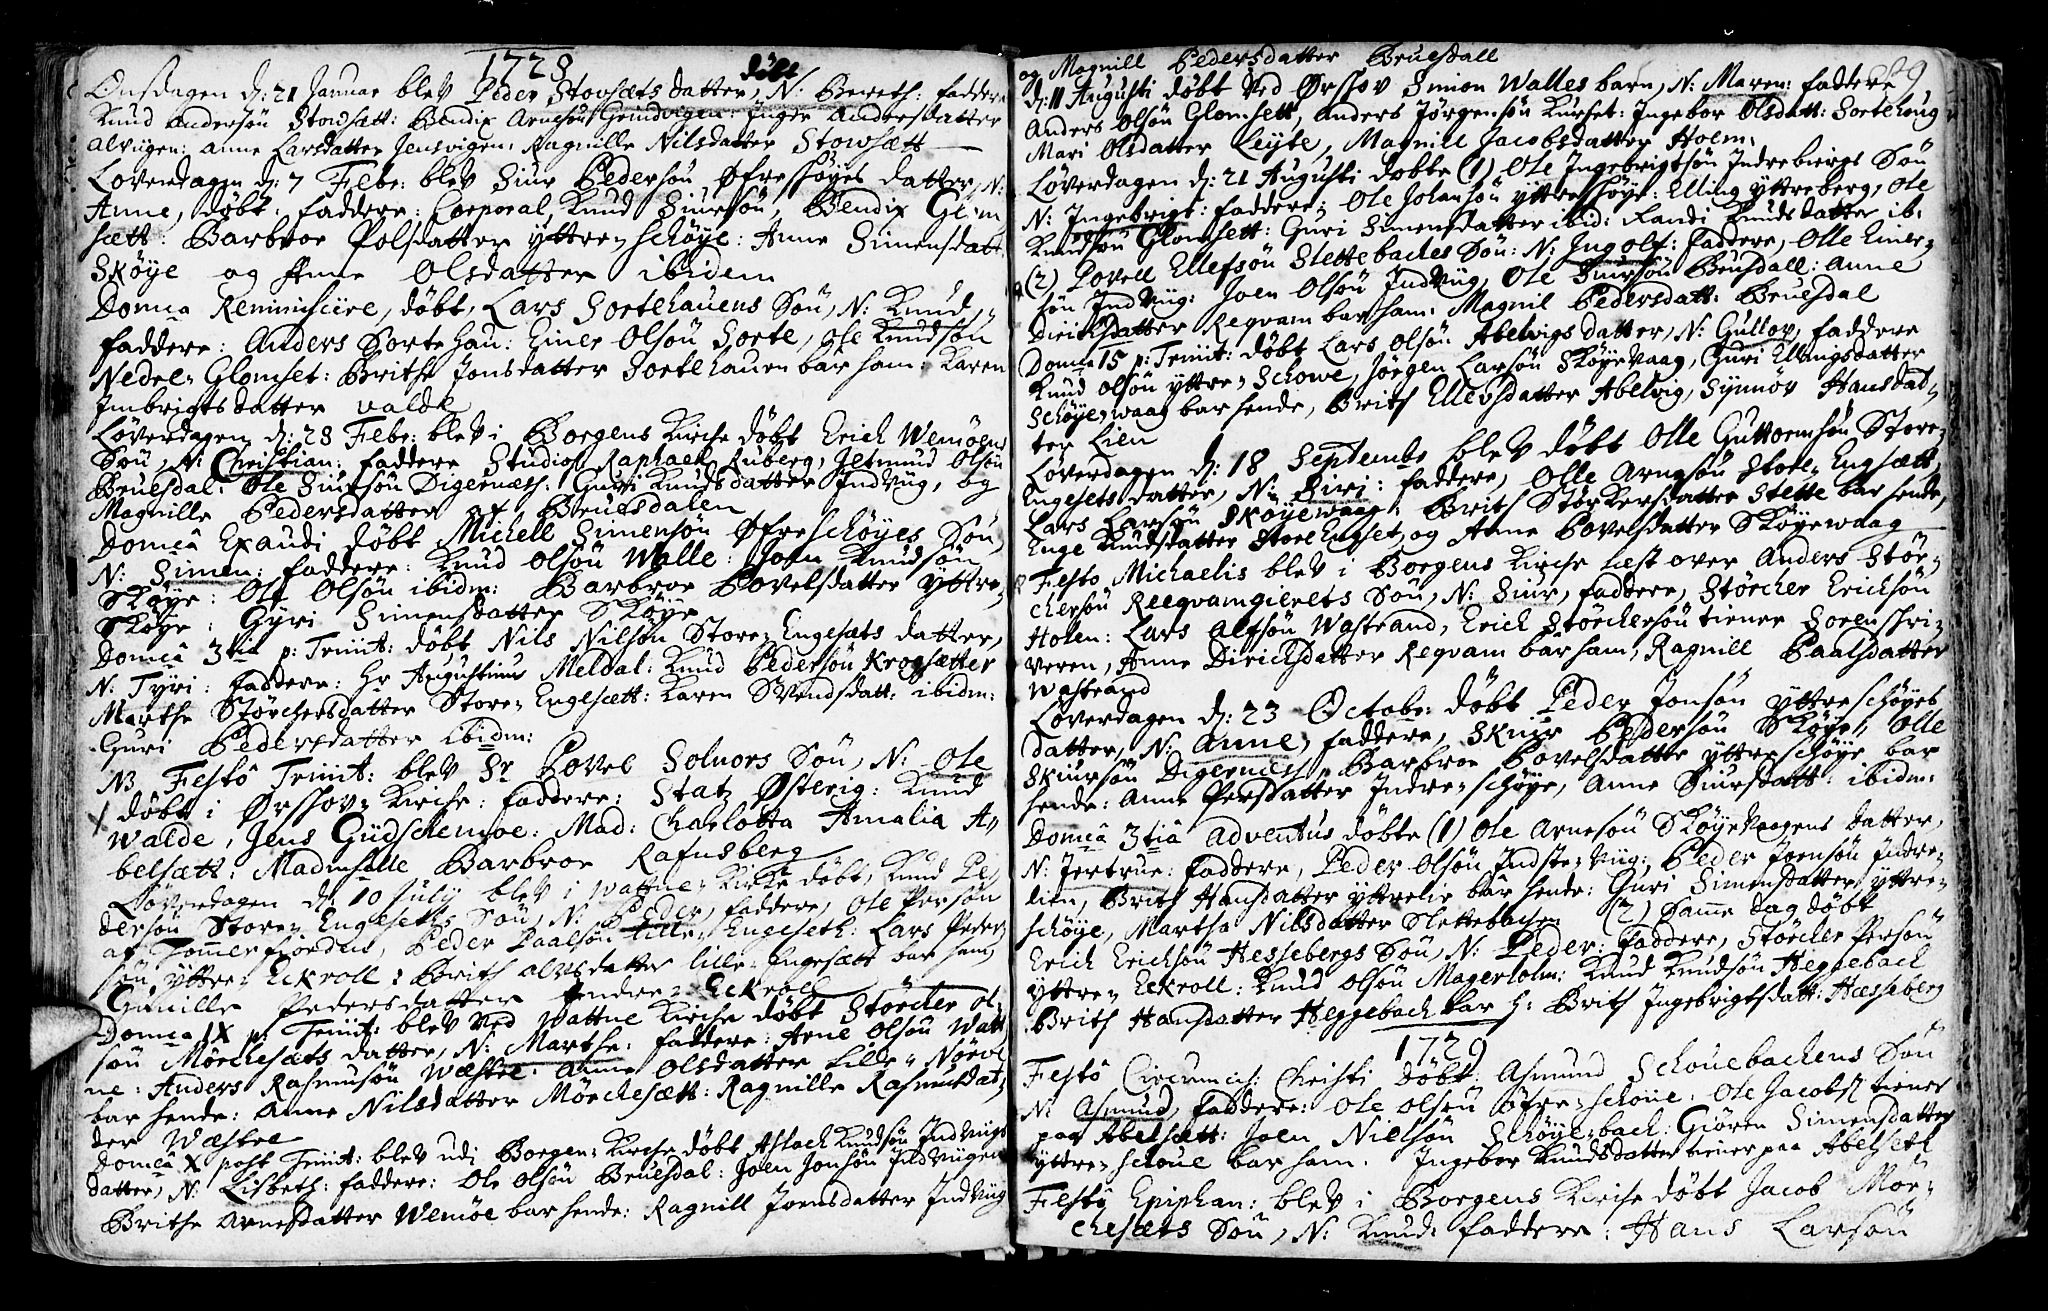 1728
døbt
Onsdagen d: 21 Januar blev Peder Stovsæts datter, N: Bereth: faddere
Knud Andersøn Stowsætt: Bendix Arnesøn Grindvigen: Inger Andersdatter
Alvigen: Anne Larsdatter Jensvigen: Ragnille Nilsdatter Stowsætt
Løverdagen d: 7 Febr: blev Siur Pedersøn Øfreschøyes datter, N:
Anne, døbt: faddere: Corporal Knud Siursøn, Bendix Glom
sætt: Barbroe Polsdatter yttre-schøye: Anne Simensdatt
Skøye og Anne Olsdatter ibidem
Domca Reminiscere, døbt, Lars Sortehauens Søn, N: Knud,
faddere: Anders Sortehau: Einer Olsøn Sorte, Ole Knudsøn
Nedre-Glomset: Brithe Jonsdatter Sortehauen bar ham: Karen
Imbrigtsdatter Valde
Løverdagen d: 28 Febr: blev i Borgens Kirche døbt Erich Wemøens
Søn, N: Christian: faddere Studios Raphael Ruberg, Jetmund Olsøn
Bruesdal: Ole Siursøn Digernæss: Guri Knudsdatter Indviig, og
Magnille Pedersdatter af Bruesdalen
Domcâ Exaudi døbt Michell Simensøn Øfreschøyes Søn,
N: Simen: faddere: Knud Olsøn Walle: Joen Knudsøn
Skøye: Ole Olsøn ibidm: Barbroe Povelsdatter yttre-
Skøye: Gyri Simensdatter Skøye
Domcâ 3tiâ p: Trinit: døbt Nils Nilsøn Store-Engesæts datter,
N: Tyri: faddere: Hr Augustinus Meldal: Knud Pedersøn Krogsætter
Marthe Størchersdatter Store-Engesætt: Karen Svendsdatt: ibidm:
Guri Pedersdatter ibidm:
NB Festo Trinit: blev Sr Povel Solnors Søn, N: Ole
døbt i Ørschov-Kirche: faddere: Statz Østerig: Knud
Walde, Jens Gudschemoe: Mad: Charlotta Amalia A-
belsætt: Madmselle Barbroe Rafnsberg
Løverdagen d: 10 July blev i Wattne-Kirke døbt, Knud Pe-
dersøn Store-Engesætts Søn, N: Peder, faddere, Ole Persøn
af Tommerfiorden, Peder Paalsøn Lille-Engeseth: Lars Peder-
søn yttre-Eckroll: Brith Alvsdatter lille-Engesætt bar ham,
Gunille Pedersdatter Indre-Eckroll
Domca IX p: Trinit: blev ved Wattne Kirche døbt Størcher Ol-
søn Mørchesæts datter, N: Marthe: faddere: Arne Olsøn Watt
ne: Anders Rasmusøn Wæstre: Anne Olsdatter Lille-Nørve
bar hende: Anne Nilsdatter Mørchesætt: Ragnille Rasmusdat-
der Wæstre
Domcâ X post Trinit: blev udi Borgen-Kirche døbt Aslach Knudsøn Indviigs
datter, N: Lisbeth: faddere: Ole Olsøn Bruesdal: Joen Jonsøn Indviigen
Brithe Arnesdatter Wemøe bar hende: Ragnill Joensdatter Indviig
og Magnill Pedersdatter Bruesdall
d: 11 Augusti døbt ved Ørschov Simon Walles barn, N: Maren: faddere
Anders Olsøn Glomsett, Anders Jørgensøn Kurset: Ingebor Olsdatt: Sortehoug
Mari Olsdatter Leyte, Magnill Jacobsdatter Holm:
Løverdagen d: 21 Augusti døbte (1) Ole Ingebrigtsøn Indrebiergs Søn
N: Ingebrigt: faddere: Ole Johansøn yttreschøye: Elling yttreberg, Ole
Knudsøn Glomsett: Guri Simensdatter ibid: Randi Knudsdatter ib:
(2) Povell Ellefsøn Stettebackes Søn: N: Ingolf: faddere, Olle Einer-
søn Indviig: Joen Olsøn Indviig, Ole Siursøn Bruesdall: Anne
Dirichsdatter Reqvam bar ham: Magnil Pedersdatt: Bruesdal
Domca 15 p: Trinit: døbt Lars Olsøn Abelvigs datter, N: Gullov, faddere
Knud Olsøn yttre-Schowe, Jørgen Larsøn Skøyevaag, Guri Ellingsdatter
Schøye-waag bar hende, Brith Ellevsdatter Abelvig, Synnøv Hansdat-
ter Lien
Løverdagen d: 18 Septembr blev døbt Olle Guttormsøn Store-
Engesets datter, N: Siri: faddere, Olle Arnesøn Store-Engsætt,
Lars Larsøn Skøyewaag: Brith Størkersdatter Stette bar hende,
Enge Knudsdatter Store Engset og Anne Povelsdatter Skøyewaag
Festo Michaelis blev i Borgens Kirche læst over Anders Stør-
chersøn Reeqvamgierets Søn, N: Siur, faddere, Størcher Erichsøn
Holen: Lars Alfsøn Wastrand, Erich Størchersøn tiener Sorenschri-
veren, Anne Dirichsdatter Reqvam bar ham, Ragnill Paalsdatter
Wastrand
Løverdagen d: 23 Octobr: døbt Peder Jonsøn yttreschøyes
datter, N: Anne, faddere, Skiur Pedersøn Skøye, Olle
Skiursøn Digernæss, Barbroe Povelsdatter ytterschøye bar
hende: Anne Persdatter Indre-schøye, Anne Siursdatt: ibidm:
Domcâ 3tiâ Adventus døbte (1) Ole Arnesøn Skøyevaagens datter,
N: Jertrue: faddere, Peder Olsøn Indste-viig: Peder Joensøn Indre-
lien, Brith Hansdatter yttrelie bar hende: Guri Simensdatter yttre-
schøye, Martha Nilsdatter Slettebachen (2) Same dag døbt
Erich Erichsøn Hessebergs Søn, N: Peder: faddere, Størcher Persøn
yttre-Eckroll: Knud Olsøn Magerholm: Knud Knudsøn Heggebach
Brith Hansdatter Heggebach bar h: Brith Ingebrigtsdatt: Hæsseberg
1729
Festô Circumcis: Christi døbt Asmund Schouebachens Søn
N: Asmund, faddere: Ole Olsøn Øfre-schøue: Ole Jacobs: tiener
paa Abelsætt: Joen Nielsøn Schøye-bach: Giøren Simensdatter
yttre-schoue bar ham. Ingebor Knudsdatter tiener paa Abelsett
Festô Epiphan: blev i Borgens Kirche døbt Jacob Mør-
chesæts Søn, N: Knud: faddere: Hans Larsøn